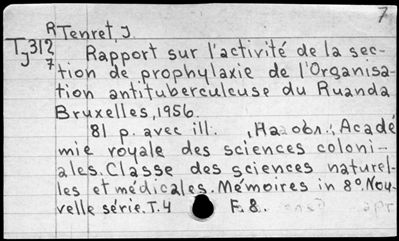 7
R Tenret, J.
Tj312
7
Rapport sur l'activité de la sec-
tion de prophylaxie de l'Organisa-
tion antituberculeuse du Ruanda
Bruxelles, 1956.
81 p. avec ill. , На обл.: Acadé
mie royale des sciences coloni-
ales. Classe des sciences naturel-
les et médicales. Mémoires in 8º. Nou-
velle série. T. 4 F. 8.